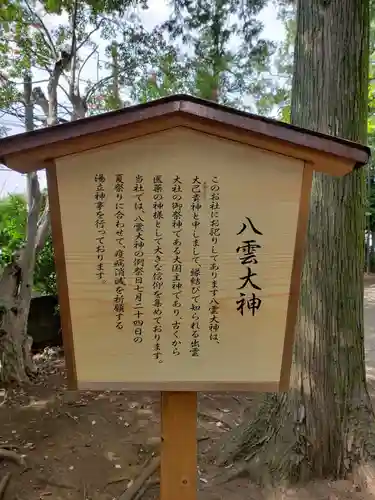 八雲大神
このお社にお祀りしてあります八雲大神は、
大己貴神と申しまして、縁結びで知られる出雲
大社の御祭神である大国主神であり、古くから
医薬の神様として大きな信仰を集めております。
当社では、八雲大神の例祭日七月二十四日の
夏祭りに合わせて、疫病消滅を祈願する
湯立神事を行っております。